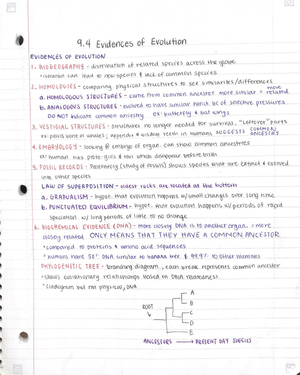 9.4 Evidences of Evolution
EVIDENCES OF EVOLUTION
1. BIOGEOGRAPHY - distribution of related species across the globe
*isolation can lead to new species & lack of common species
2. HOMOLOGIES - comparing physical structures to see similarities/differences
a. HOMOLOGOUS STRUCTURES - came from common ancestor more similar = more related
b. ANALOGOUS STRUCTURES - evolved to have similar b/c of selective pressures
DO NOT indicate common ancestry ex/ butterfly & bat wings
3. VESTIGIAL STRUCTURES - structures no longer needed for survival "leftover" parts
ex/ pelvis bone in whales; appendix & wisdom teeth in humans SUGGESTS COMMON ANCESTRY
4. EMBRYOLOGY - looking @ embryo of organism can show common ancestries
ex/ human has gills and tail which disappear before birth
5. FOSSIL RECORDS - Paleontology (study of fossils) shows species that are extinct & evolved
into other species
LAW OF SUPERPOSITION - oldest rocks are located at the bottom
a. GRADUALISM - hypoth. that evolution happens w/ small changes over long time
b. PUNCTUATED EQUILIBRIUM - hypoth. that evolution happens w/ periods of rapid
speciation w/ long periods of little to no change
6. BIOCHEMICAL EVIDENCE (DNA) - more closely DNA is to another organism = more
closely related ONLY MEANS THAT THEY HAVE A COMMON ANCESTOR
*compared to proteins & amino acid sequences
*humans have 50% DNA similar to banana tree & 99.9% to other humans
PHYLOGENETIC TREE - branching diagram, each break represents common ancestor
*shows evolutionary relationships based on DNA relatedness
*cladogram but not physical, DNA
ROOT
A
B
C
D
E
ANCESTORS → PRESENT DAY SPECIES